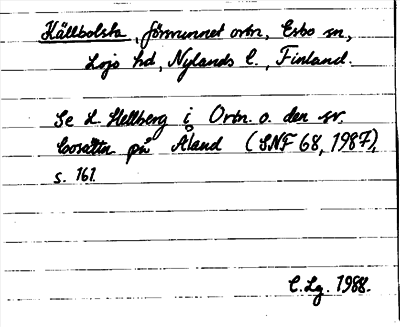 Källbolsta, försvunnet ortn., Esbo sn,
Lojo hd, Nylands l., Finland.
Se L. Hellberg i Ortn. o. den sv.
bosättn. på Åland (SNF 68, 1987),
s. 161.
C.Lg. 1988.